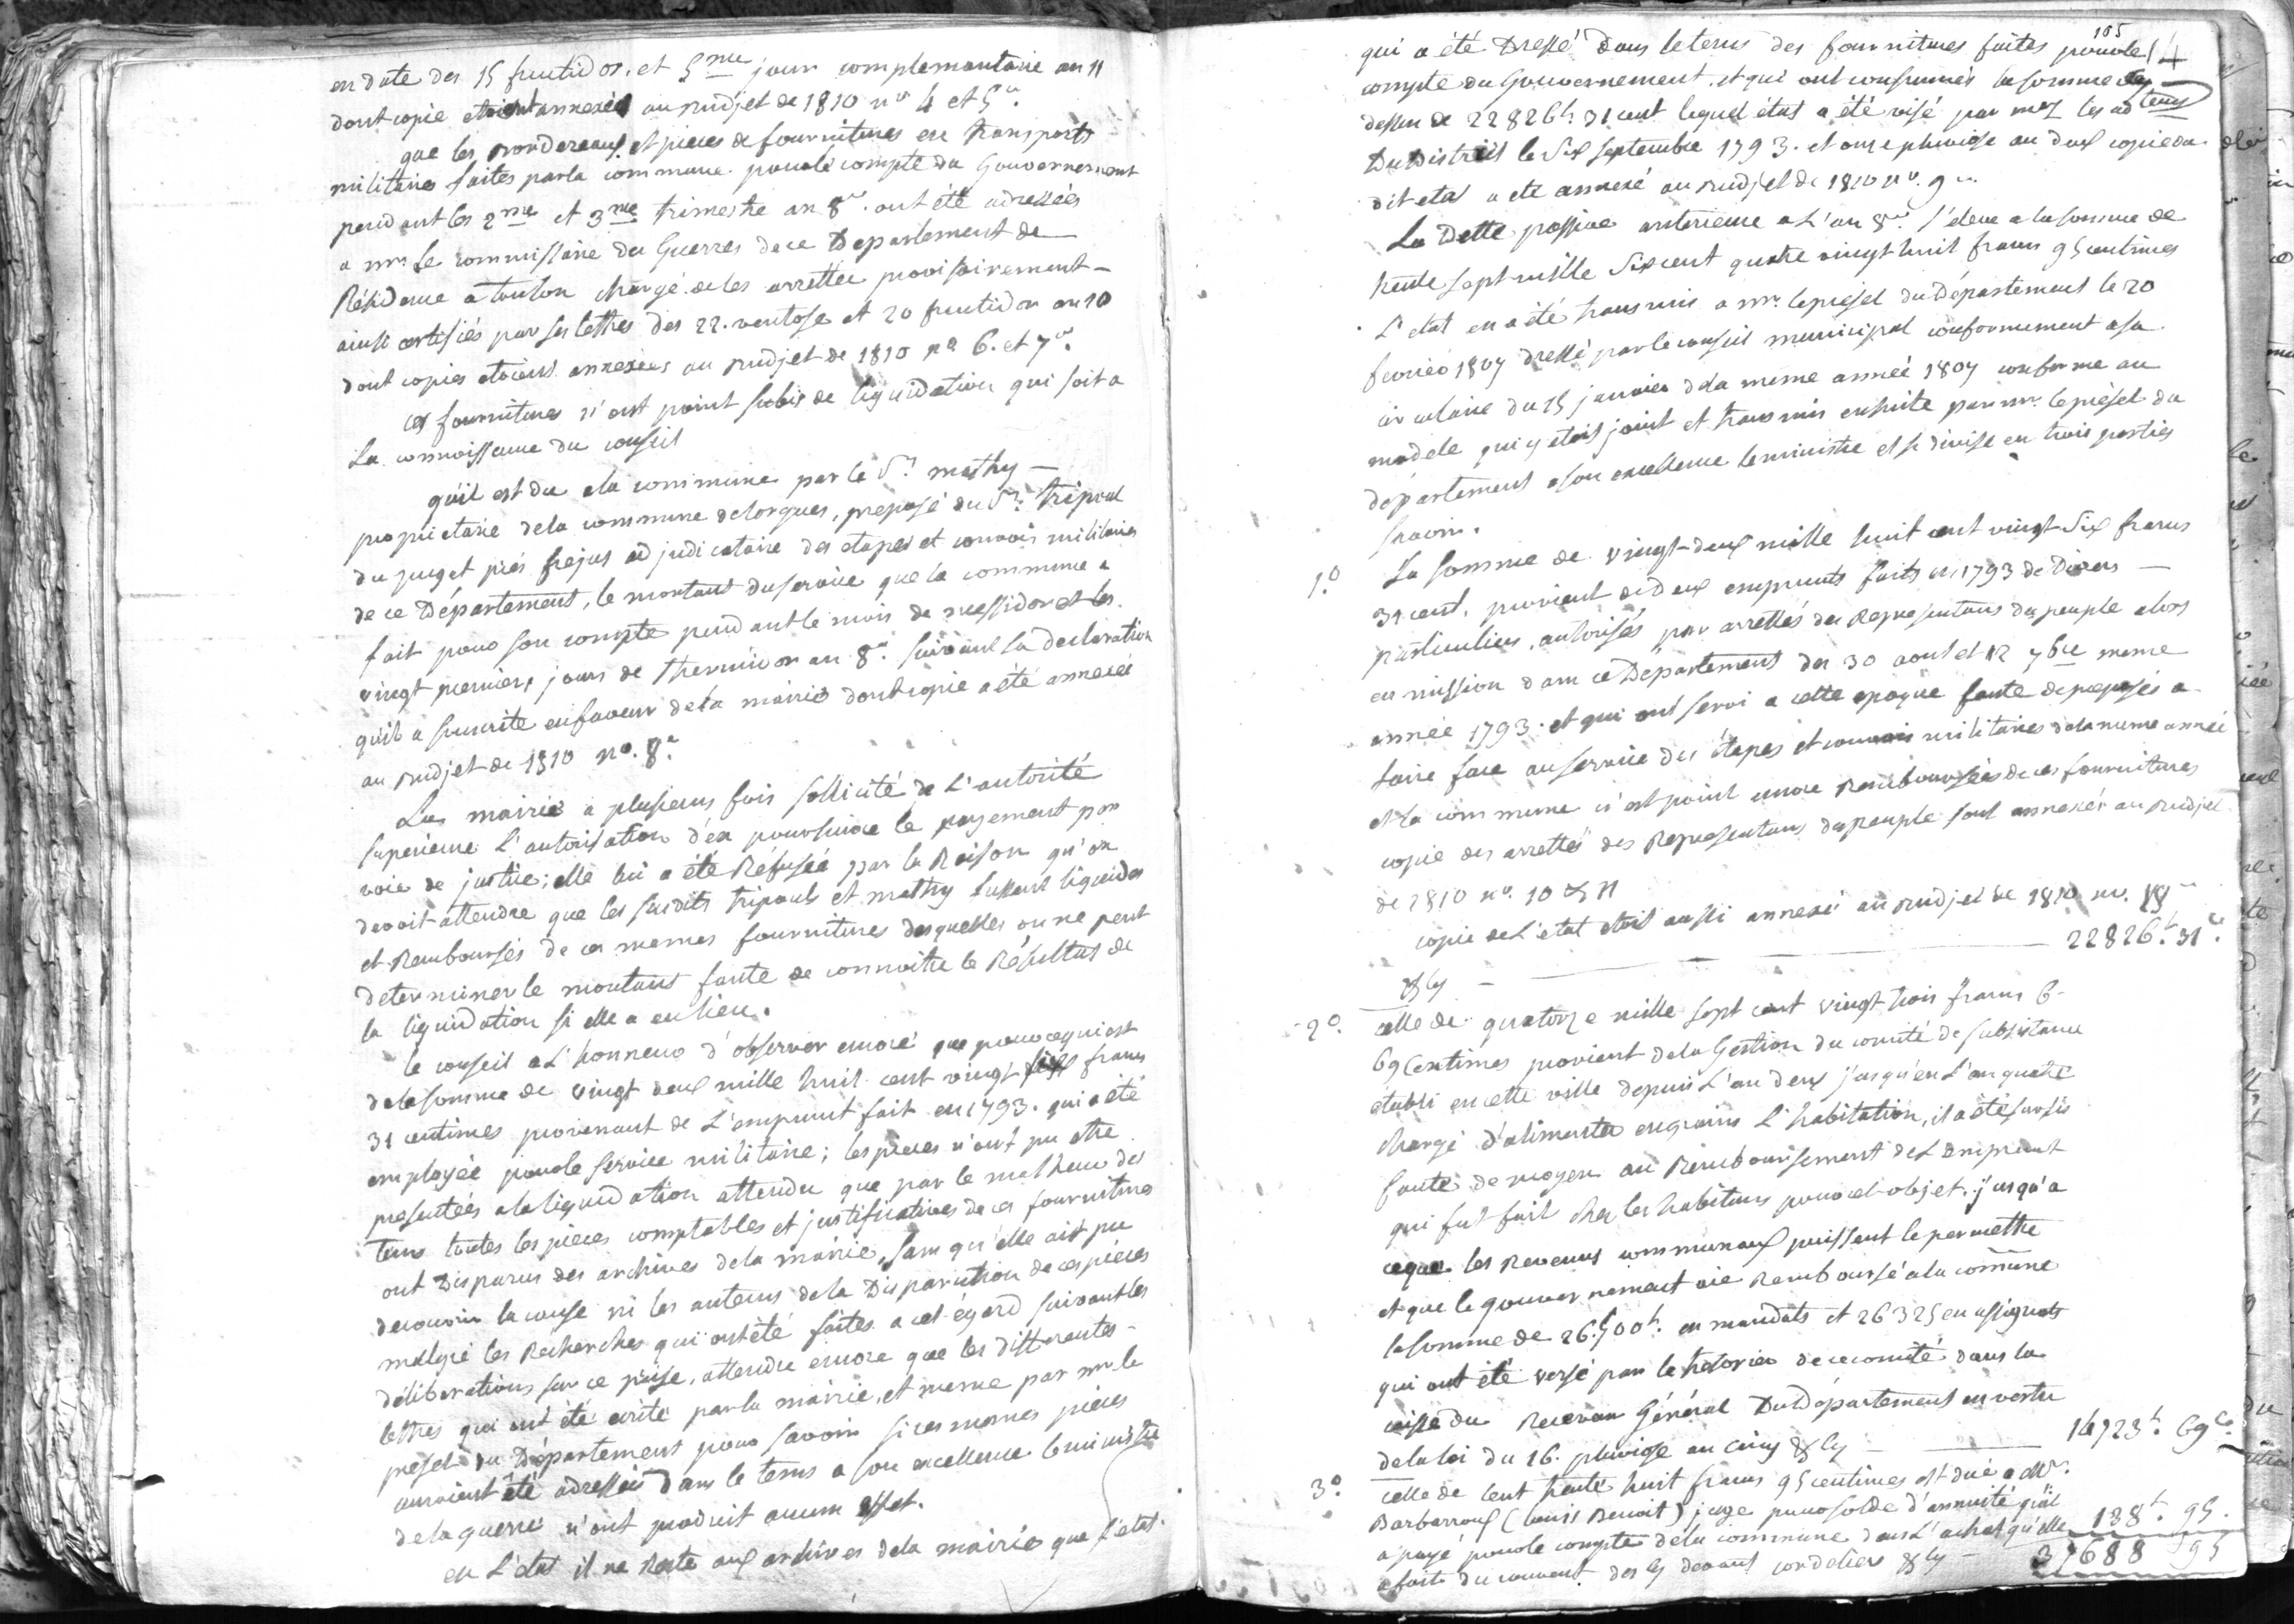 en date des 15 fructidor et 5me jour complemantaire an 11
dont copie etoient annexées au budjet de 1810 no 4 et 5.
que les bordereaux et pieces de fournitures en transports
militaires faites par la commune pour le compte du Gouvernement
pendant les 2me et 3me trimestre an 8e ont été adressées
a mr. le commissaire des Guerres de ce Departement de
Résidence a toulon chargé de les arretter provisoirement
ainsi certifiés par ses lettres des 22. ventose et 20 fructidor an 10
dont copies etoient annexées au budjet de 1810 no 6. et 7e.
ces fournitures n'ont point subis de liquidation qui soit a
La connoissance du conseil
qu'il est du a la commune par le Sr. mathy
propriétaire de la commune de lorgues, préposé du Sr. tripoul
du puget près frejus adjudicataire des etapes et convois militaires
de ce Département, le montant du service que la commune a
fait pour son compte pendant le mois de messidor et les
vingt premiers jours de thermidor an 8e. suivant la declaration
qu'il a souscrite en faveur de la mairie dont copie a été annexée
au budjet de 1810 no. 8e.
La mairie a plusieurs fois sollicité de L'autorité
superieure L'autorisation d'en poursuivre le payement par
voie de justice; elle lui a été Réfusée par la Raison qu'on
devoit attendre que les susdits tripoul et mathy fussent liquidés
et Remboursés de ces memes fournitures desquelles on ne peut
determiner le montant faute de connoitre le Résultat de
la liquidation si elle a eu lieu.
le conseil a L'honneur d'observer encore que pour ce qui est
de la somme de vingt deux mille huit cent vingt six francs
31 centimes provenant de L'emprunt fait en 1793. qui a été
employée pour le service militaire; les pieces n'ont pu etre
presentées a la liquidation attendu que par le malheur des
tems toutes les pieces comptables et justificatives de ces fournitures
ont Disparus des archives de la mairie, sans qu'elle ait pu
decouvrir la cause ni les auteurs de la Disparution de ces pieces
malgré les Recherches qui ont été faites a cet égard suivant les
déliberations sur ce prise, attendu encore que les differentes
lettres qui ont été ecrite par la mairie, et meme par mr. le
prefet du Département pour savoir si ces memes pieces
auroient été adressées dans le tems a son excellence le ministre
de la guerre n'ont produit aucun effet.
en L'etat il ne Reste aux archives de la mairie que L'etat
105
14
qui a été Dressé dans le tems des fournitures faites pour le
compte du Gouvernement. et qui ont consumés la somme cy
dessus de 22826 fr. 31 cent lequel état a été visé par mrs les ad teurs
Du District le Six septembre 1793. et onze pluviose an deux copie du
dit etat a été annexé au budjet de 1810 no. 9
La Dette passive anterieure a L'an 8e. s'eleve a la somme de
trente sept mille six cent quatre vingt huit francs 95 centimes
L'etat en a été transmis a mr. le prefet du Département le 20
fevrier 1807 dressé par le conseil municipal conformement a sa
circulaire du 15 janvier de la meme année 1807 conforme au
modele qui y etoit joint et transmis ensuite par mr. le préfet du
département a son excellence le ministre et se divise en trois parties
savoir.
1.o La somme de vingt-deux mille huit cent vingt-six francs
31 cent. provient de deux emprunts faits en 1793 de Divers
particuliers, autorisés par arrettés des Representans du peuple alors
en mission dans ce Département des 30 aout et 12 7bre meme
année 1793. et qui ont servi a cette epoque faute de préposés a
faire face au service des étapes et convois militaires de la meme année
et la commune n'est point encore Remboursées de ces fournitures
copie des arrettés des Representans du peuple sont annexés au budjet
de 1810 no. 10 & 11
copie de L'etat etoit aussi annexé au budjet de 1810 no.
& Cy 22826 fr. 31 c.
2o. celle de quatorze mille sept cent vingt trois francs 6
69 Centimes provient de la Gestion du comité de subsistance
établi en cette ville depuis L'an deux jusqu'en L'an quatre
chargé d'alimenter en grains L'habitation, il a été sursis
faute de moyen au Remboursement de L'emprunt
qui fut fait chez les habitans pour cet objet. jusqu'a
ce que les Revenus communaux puissent le permettre
et que le gouvernement aie Remboursé a la commune
la somme de 26.500 fr. en mandats et 26325 en assignats
qui ont été versé par le trésorier de ce comité dans la
caisse du Receveur Général Du département en vertu
de la loi du 16. pluviose an cinq & Cy 14723 fr. 69 c.
3o. celle de Cent trente huit francs 95 centimes est due a Mr.
Barbarroux (louis Benoit) juge pour solde d'annuité qu'il
a payé pour le compte de la commune dans L'achat qu'elle 138 fr. 95.
a fait du couvent des cy devant cordeliers & Cy 37688 95